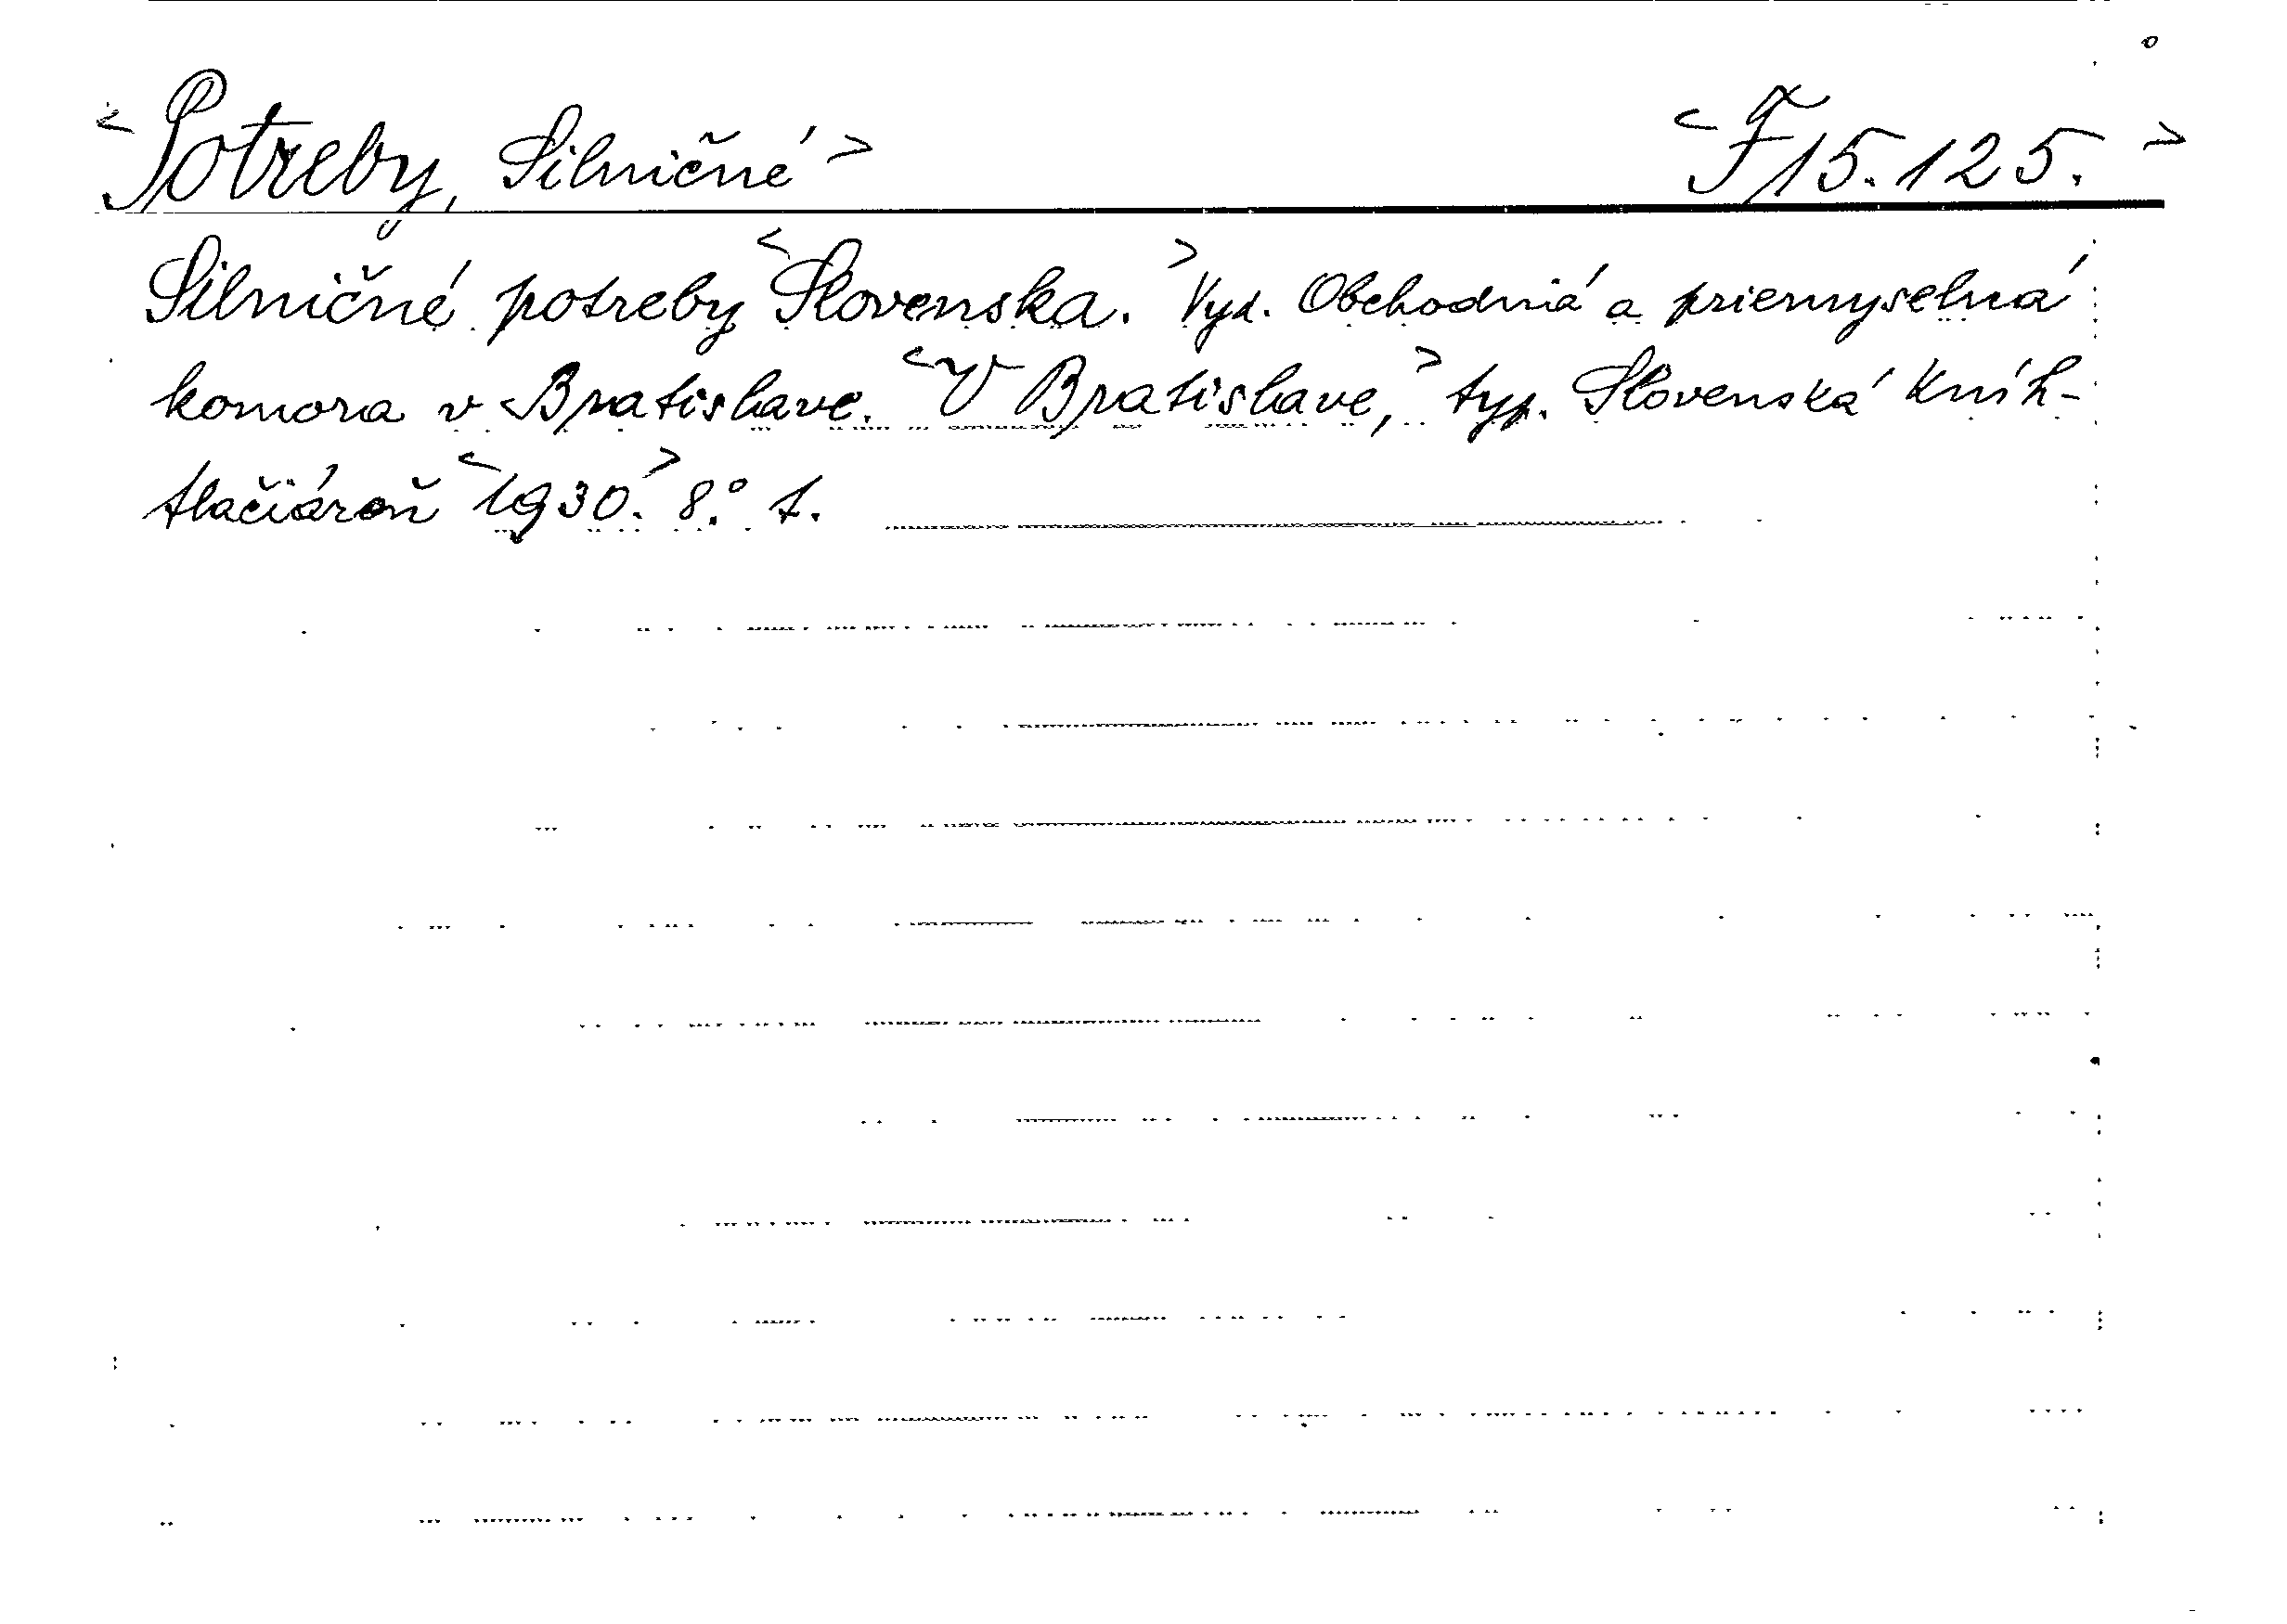 <Potreby, Silničné> <F 15.125.>
Silničné potreby <Slovenska.> Vyd. Obchodná a priemyselná
komora v Bratislave. <V Bratislave,> typ. Slovenská kníh-
tlačiáreň <1930.> 8.° s.